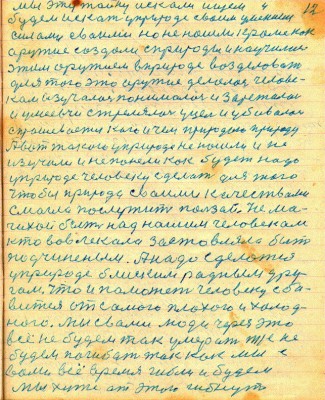 мы эту тайну искали ищем и 12
будем искать у природе своим умением
силами своими но не нашли Кроме как
оружие создали с природы и научили
этим оружием в природе воздействовать
для того это оружие делалося челове-
кам изучалося понималося и
и умевчи стрелялося и убивалося
спрашевается кого и чем природою природу
А вот такого у природе не нашли и не
изучили и не поняли как будет надо
у природе человеку сделать для того
чтобы природа своими качествами
смогла послужить ползай Не ма-
чихой быть над нашим человекам
кто вовлекала заставляла быть
подчиненым. А надо сделатся
у природе близким родным дру-
гом, что и поможет человеку изба-
вится от самого плохого и холод-
ного. Мы с вами люди через это
всё не будем так умерать и не
будем погибать так как мы с
вами всё время гибли и будем
мы жить от этого гибнуть